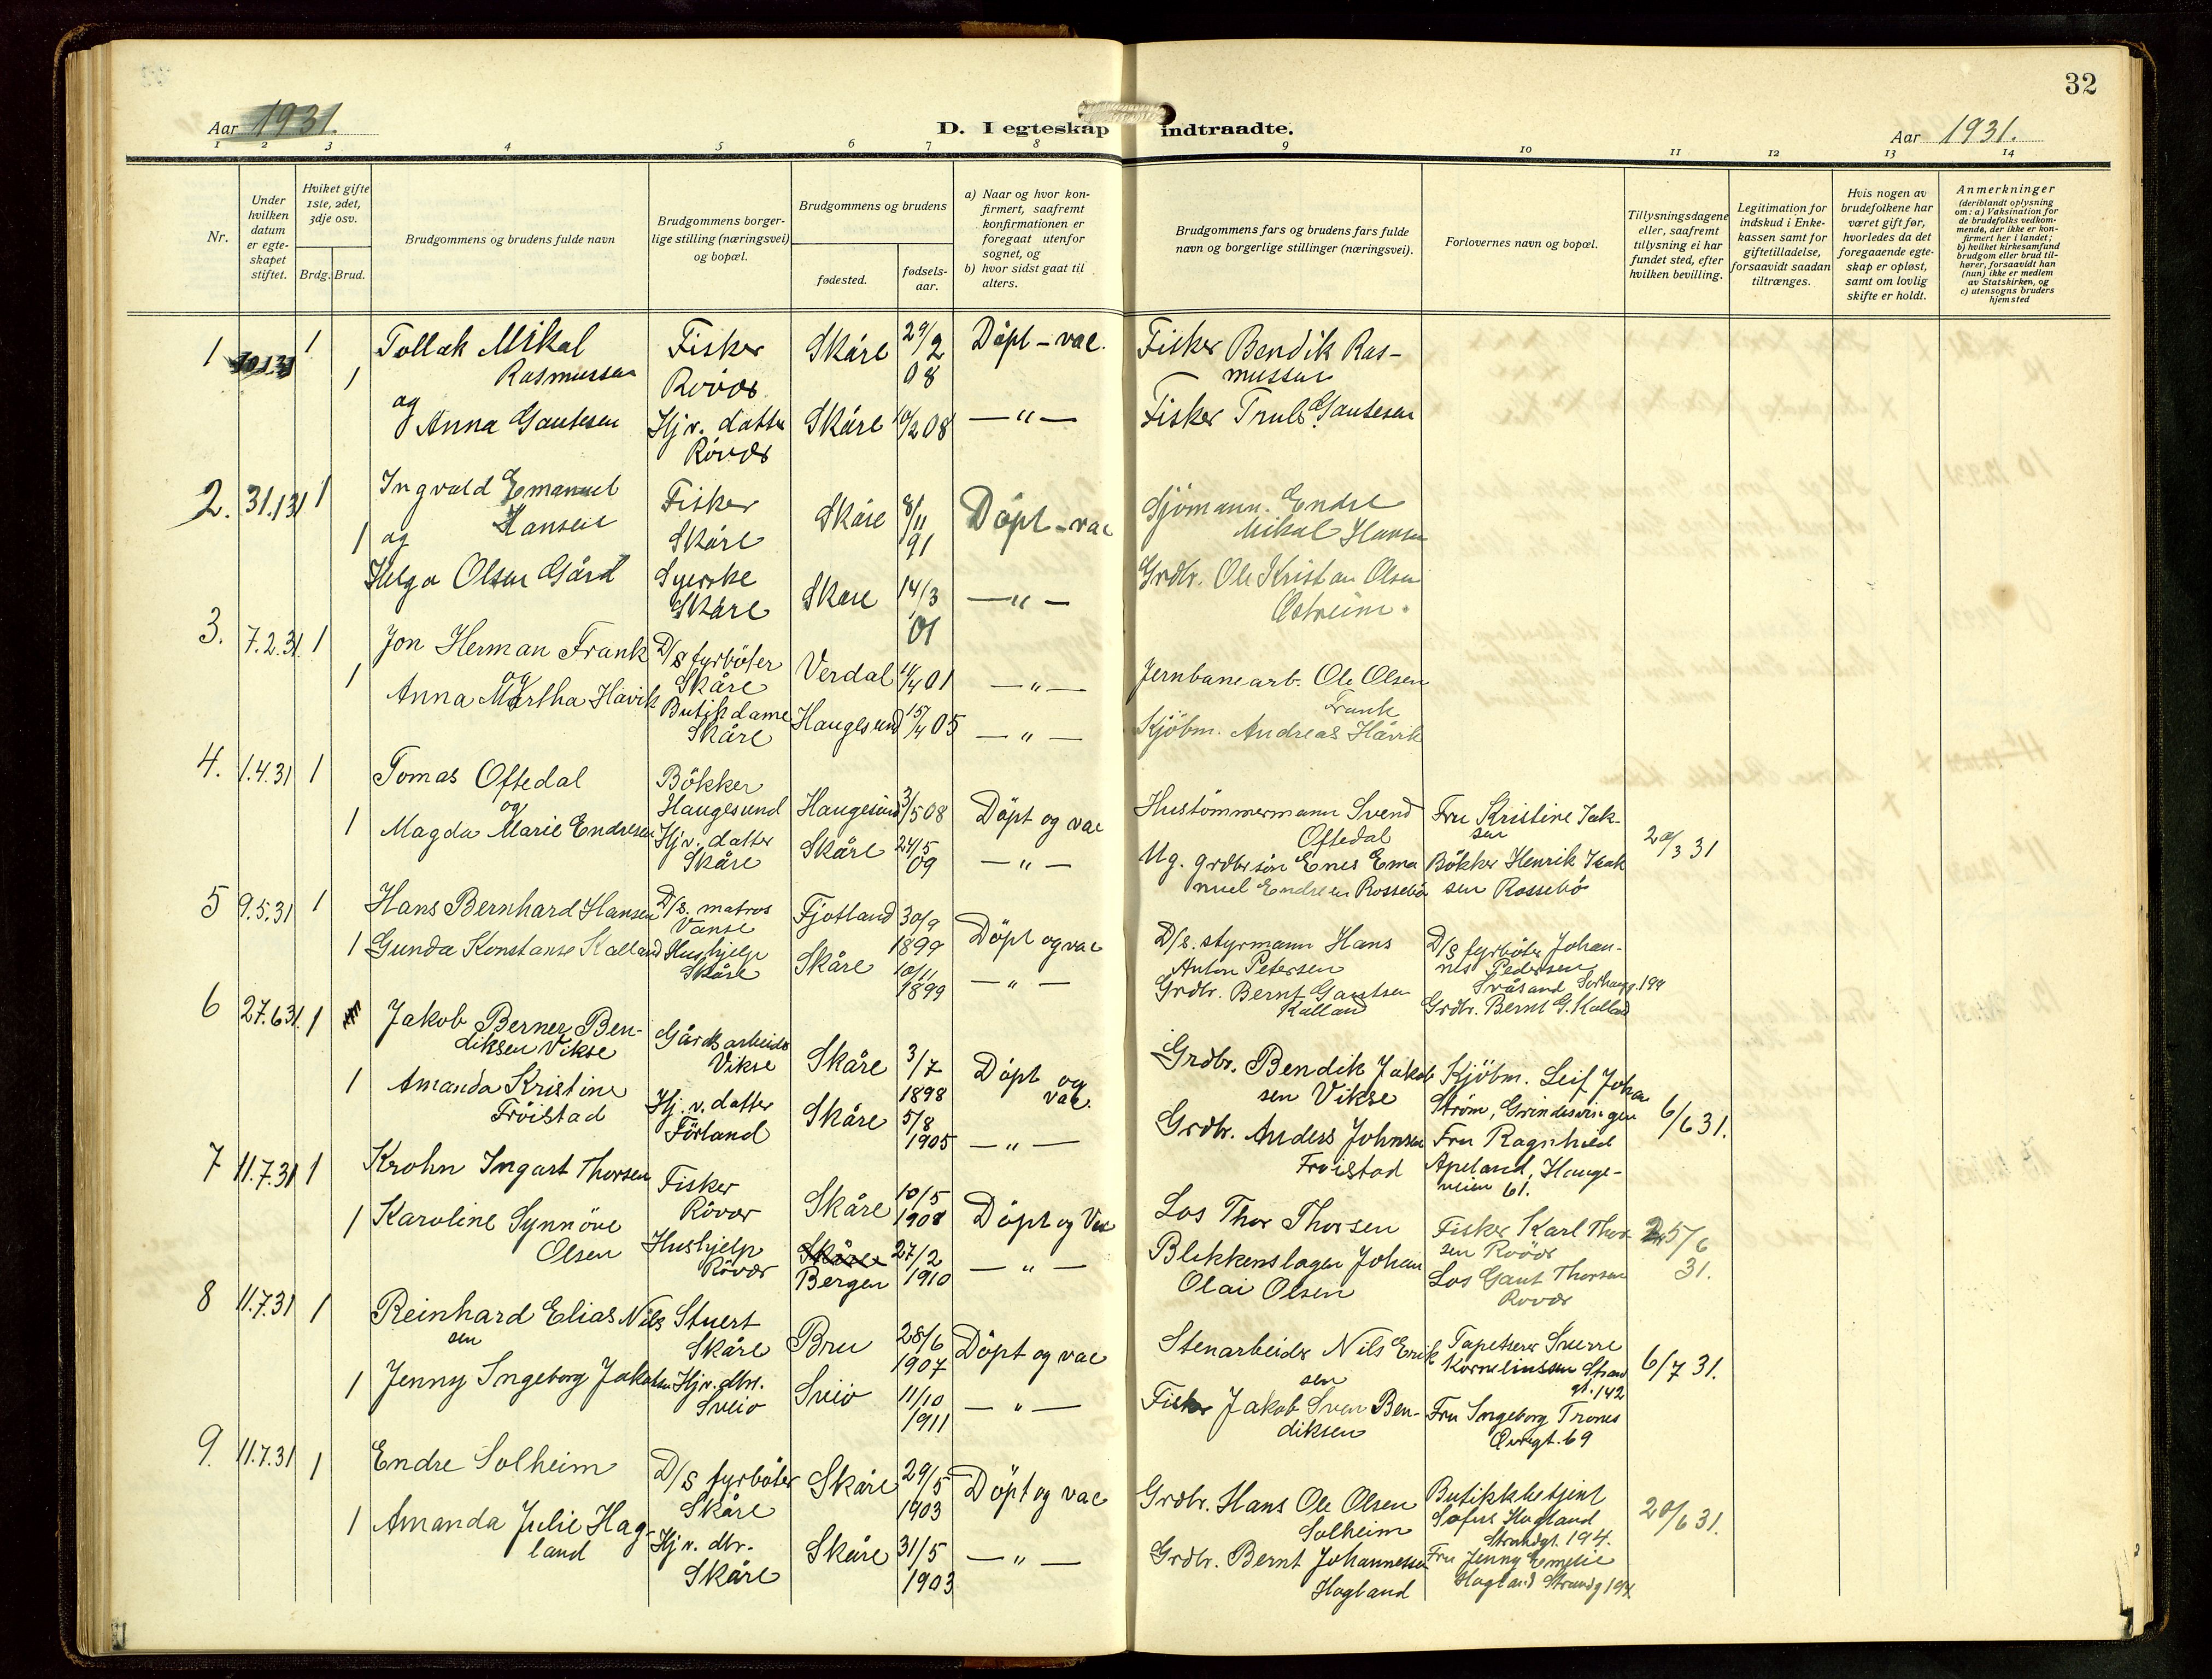 32
Aar 1931.
D. I egteskap indtraadte.
Aar 1931.
1 2 3 4 5 6 7 8 9 10 11 12 13 14
Nr.
Under hvilken datum er egte-skapet stiftet.
Hviket gifte 1ste, 2det, 3dje osv.
Brdg. Brud.
Brudgommens og brudens fulde navn
Brudgommens borger-lige stilling (næringsvei) og bopæl.
Brudgommens og brudens
fødested.
fødsels-aar.
a) Naar og hvor kon-firmert, saafremt konfirmationen er foregaat utenfor sognet, og
b) hvor sidst gaat til alters.
Brudgommens fars og brudens fars fulde navn og borgerlige stillinger (næringsvei).
Forlovernes navn og bopæl.
Tillysningsdagene eller, saafremt tillysning ei har fundet sted, efter hvilken bevilling.
Legitimation for indskud i Enke-kassen samt for giftetilladelse, forsaavidt saadan tiltrænges.
Hvis nogen av brudefolkene har været gift før, hvorledes da det foregaaende egte-skap er opløst, samt om lovlig skifte er holdt.
Anmerkninger (deriblandt oplysning om: a) Vaksination for de brudefolks vedkom-mende, der ikke er kon-firmert her i landet; b) hvilket kirkesamfund brudgom eller brud til-hører, forsaavidt han (hun) ikke er medlem av Statskirken, og c) utensogns bruders hjemsted
1 1 Tollak Mikal Rasmussen Fisker Røvær Skåre 29/2 08 Döpt - vac. Fisker Bendik Ras-mussen
1 og Anna Gautesen Hj.v. datter Røvær Skåre 10/2 08 — " — Fisker Truls Gautesen
2. 31.1 31 1 Ingvald Emanuel Hansen Fisker Skåre Skåre 8/11 91 Döpt - vac Sjömann. Endre Mikal Hansen
1 og Helga Olsen Gård Syerske Skåre Skåre 14/3 01 — " — Grdbr. Ole Kristian Olsen Østreim.
3. 7.2.31. 1 Jon Herman Frank D/s fyrböter Skåre Verdal 11/4 01 — " — Jernbanearb. Ole Olsen Frank
1 og Anna Martha Håvik Butikdame Skåre Haugesund 15/4 05 — " — Kjöbm. Andreas Håvik
4. 1.4.31 1 Tomas Oftedal Bökker Haugesund Haugesund 3/5 08 Döpt og vac Hustömmermann Svend Oftedal Fru Kristine Isak-sen 20/3 31
1 og Magda Marie Endresen Hj.v. datter Skåre Skåre 24/5 09 — " — Ug. grdbr sön Enes Ema nuel Endresen Rossebö Bökker Henrik Isak sen Rossebö
5 9.5.31 1 Hans Bernhard Hansen D/s. matros Vanse Fjotland 30/9 1899 Döpt og vac D/s. styrmann Hans Anton Petersen D/s fyrböter Johan-nes Pedersen Svåsand Sörhaug. 199
1 Gunda Konstanse Kalland Hushjelp Skåre Skåre 10/11 1899 — " — Grdbr. Bernt Gautsen Kalland Grdbr. Bernt G. Kalland
6 27.6 31. 1 Jakob Berner Ben-diksen Vikse Gårdsarbeider Vikse Skåre 3/7 1898 Döpt og vac. Grdbr. Bendik Jakob sen Vikse Kjöbm. Leif Johan Ström, Grindesvingen 6/6 31.
1 Amanda Kristine Fröistad Hj. v. datter Förland Skåre 5/8 1905 — " — Grdbr. Anders Johnsen Fröistad Fru Ragnhild Apeland, Hauge-veien 61.
7 11.7.31 1 Krohn Ingart Thorsen Fisker Rövær Skåre 10/5 1908 Döpt og Vac Los Thor Thorsen Fisker Karl Thor sen Rövær 25/6 31.
1 Karoline Synnöve Olsen Hushjelp Rövær Skåre Bergen 27/2 1910 — " — Blikkenslager Johan Olai Olsen Los Gaut Thorsen Rövær
8 11.7.31 1 Reinhard Elias Nils sen Stuert Skåre Bru 28/6 1907 Döpt og vac Stenarbeider Nils Erik sen Tapetserer Sverre Korneliussen Strand gt. 142 6/7 31.
1 Jenny Ingeborg Jakobsen Hj.v. dtr. Sveio Sveio 11/10 1911 — " — Fisker Jakob Sven Ben-diksen Fru Ingeborg Trones Øvregt. 69
9. 11.7.31 1 Endre Solheim D/s fyrböter Skåre Skåre 29/5 1903 Döpt og vac Grdbr. Hans Ole Olsen Solheim Butikkbetjent Sofus Hagland Strandgt. 194. 20/6 31.
1 Amanda Julie Hag-land Hj v. dtr. Skåre Skåre 31/5 1903 — " — Grdbr. Bernt Johannessen Hagland Fru Jenny Emelie Hagland Strandg 194